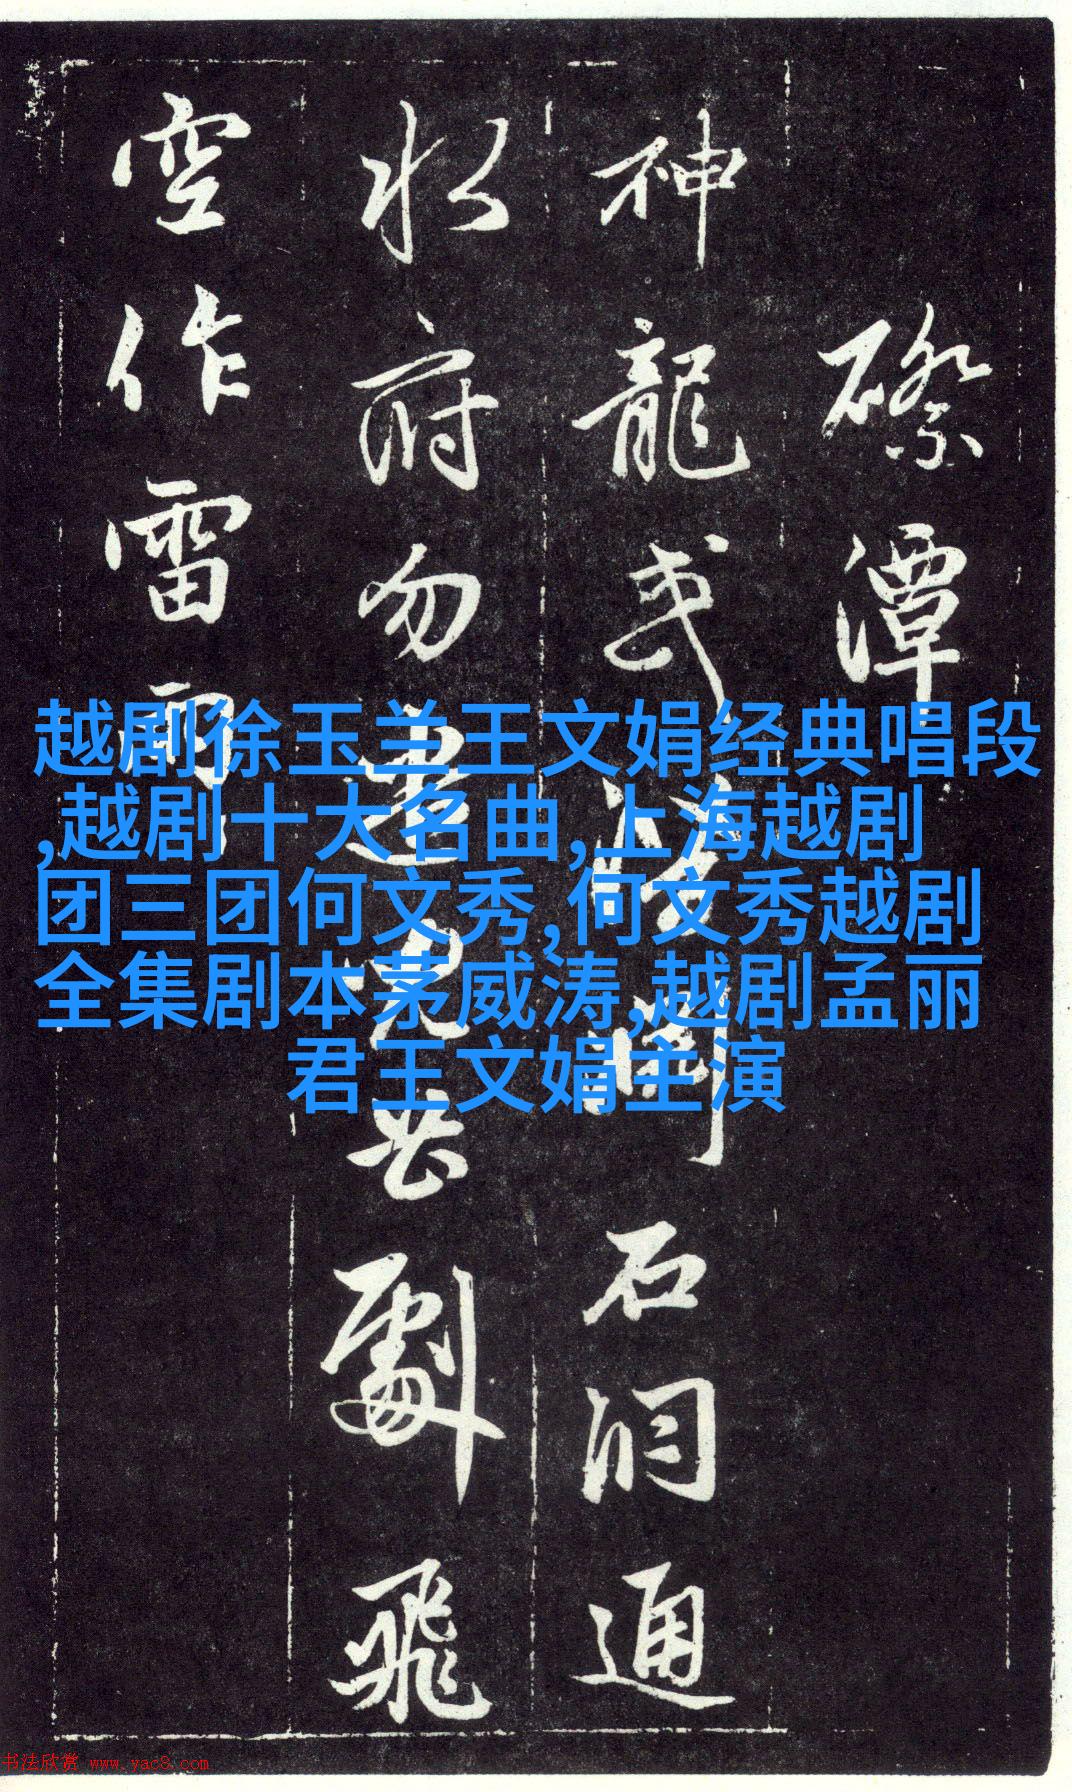 潭
神龍或石洞通
水府勿劇飛
空作雷雨
越剧徐玉兰王文娟经典唱段
,越剧十大名曲,上海越剧
团三团何文秀,何文秀越剧
全集剧本茅威涛,越剧孟丽
君王文娟主演
书法欣赏 www.yac8.com